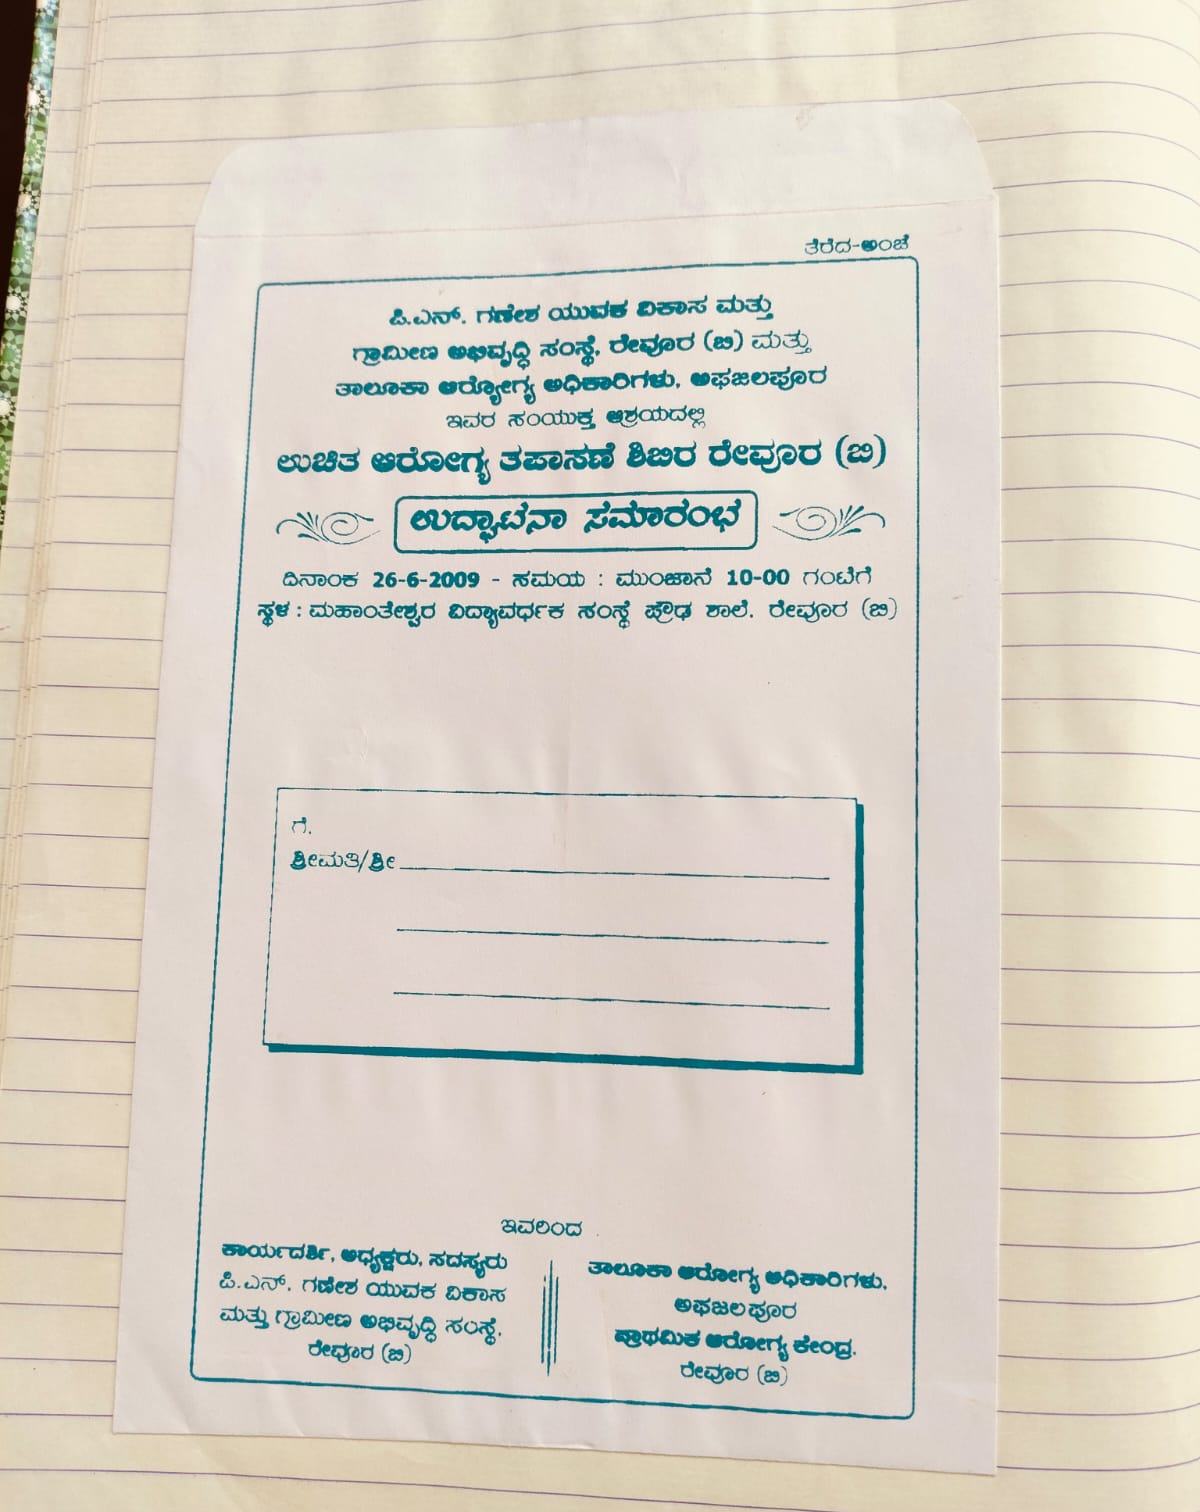 ತೆರೆದ-ಅಂಚೆ
ಪಿ.ಎನ್. ಗಣೇಶ ಯುವಕ ವಿಕಾಸ ಮತ್ತು
ಗ್ರಾಮೀಣ ಅಭಿವೃದ್ಧಿ ಸಂಸ್ಥೆ, ರೇವೂರ (ಬಿ) ಮತ್ತು
ತಾಲೂಕಾ ಆರ‍್ಯೋಗ್ಯ ಅಧಿಕಾರಿಗಳು, ಅಫಜಲಪೂರ
ಇವರ ಸಂಯುಕ್ತ ಆಶ್ರಯದಲ್ಲಿ
ಉಚಿತ ಆರೋಗ್ಯ ತಪಾಸಣೆ ಶಿಬಿರ ರೇವೂರ (ಬಿ)
ಉದ್ಘಾಟನಾ ಸಮಾರಂಭ
ದಿನಾಂಕ 26-6-2009 - ಸಮಯ : ಮುಂಜಾನೆ 10-00 ಗಂಟೆಗೆ
ಸ್ಥಳ : ಮಹಾಂತೇಶ್ವರ ವಿದ್ಯಾವರ್ಧಕ ಸಂಸ್ಥೆ ಪ್ರೌಢ ಶಾಲೆ. ರೇವೂರ (ಬಿ)
ಗೆ.
ಶ್ರೀಮತಿ/ಶ್ರೀ
ಇವರಿಂದ
ಕಾರ್ಯದರ್ಶಿ, ಅಧ್ಯಕ್ಷರು, ಸದಸ್ಯರು
ಪಿ.ಎನ್. ಗಣೇಶ ಯುವಕ ವಿಕಾಸ
ಮತ್ತು ಗ್ರಾಮೀಣ ಅಭಿವೃದ್ಧಿ ಸಂಸ್ಥೆ,
ರೇವೂರ (ಬಿ)
ತಾಲೂಕಾ ಆರೋಗ್ಯ ಅಧಿಕಾರಿಗಳು,
ಅಫಜಲಪೂರ
ಪ್ರಾಥಮಿಕ ಆರೋಗ್ಯ ಕೇಂದ್ರ,
ರೇವೂರ (ಬಿ)